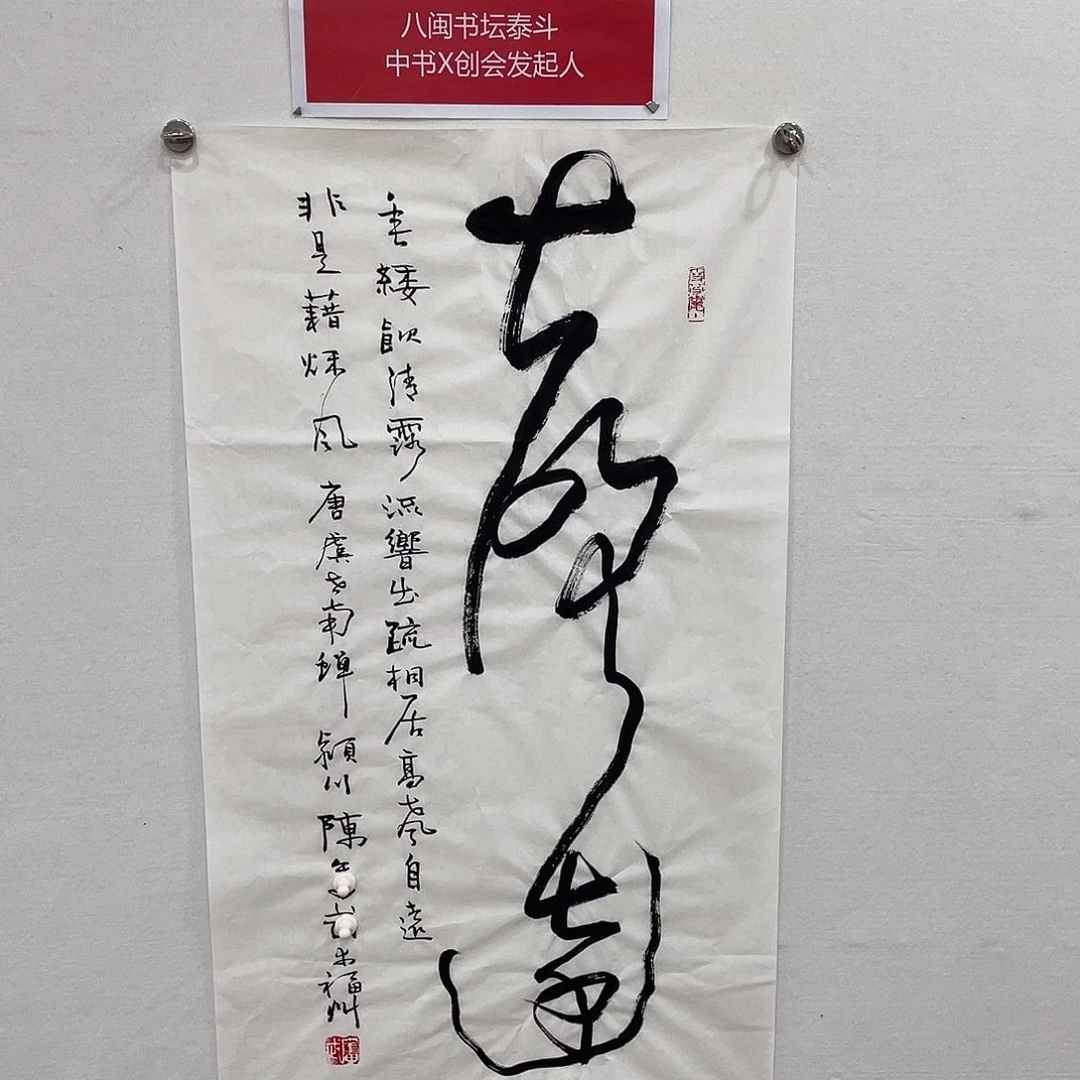 八闽书坛泰斗
中书X创会发起人
聲遠
垂緌飲清露流響出疏桐居高聲自遠
非是藉秋風唐虞世南蟬潁川陳 福州